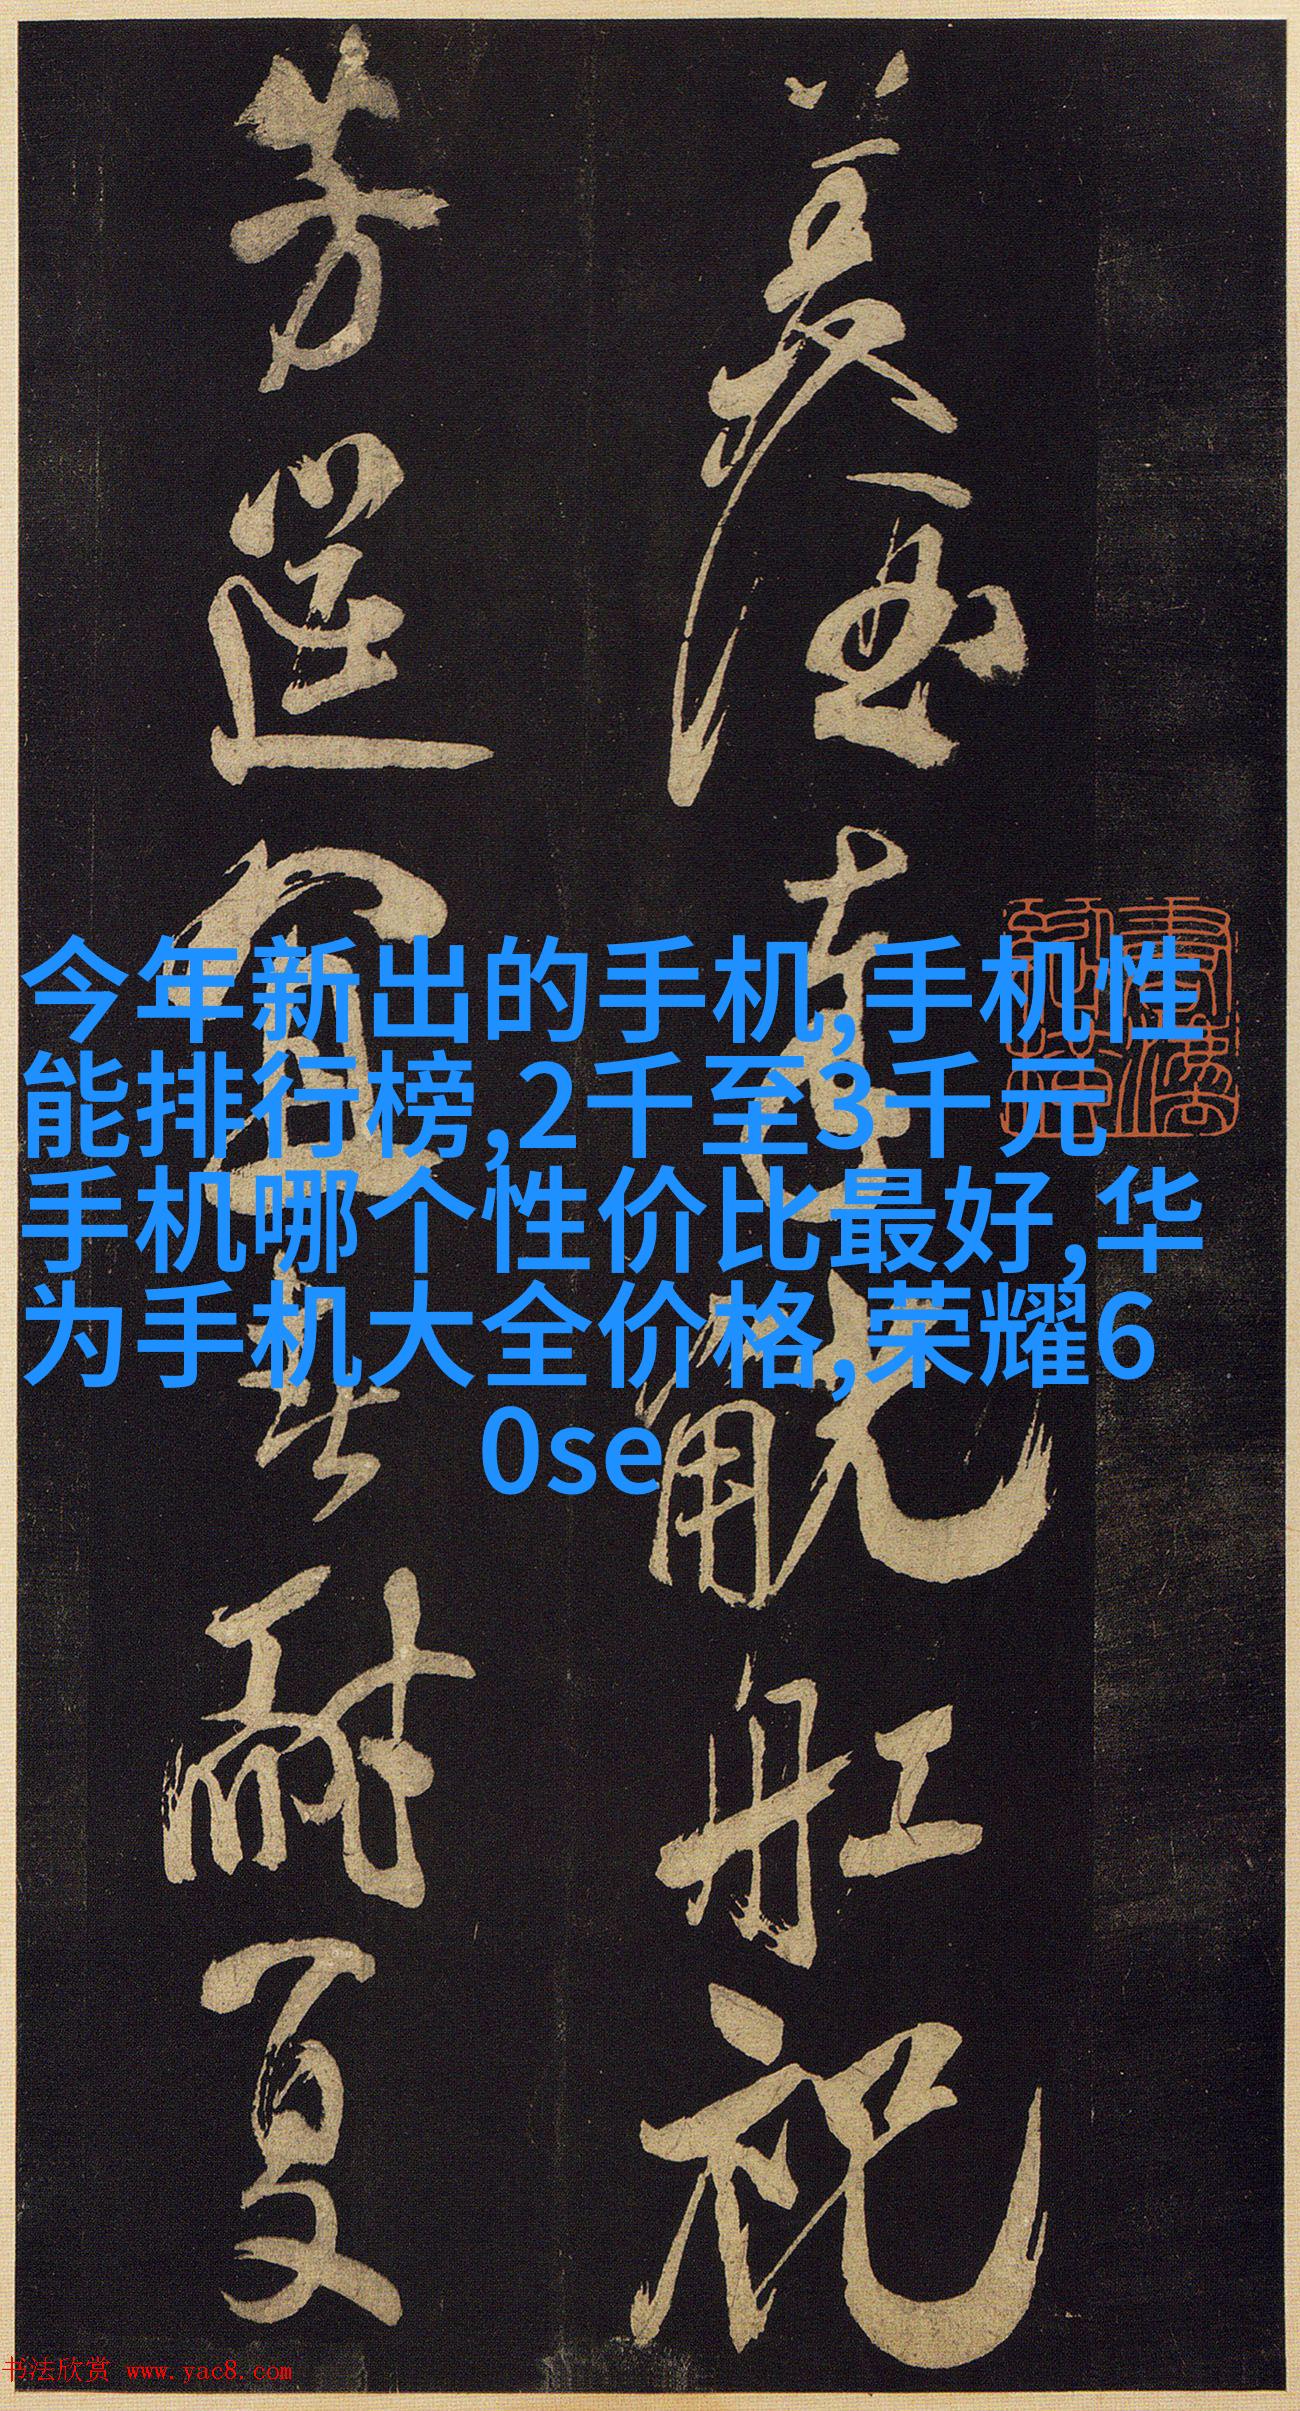 觥舡祝
芳筵宜春耐夏
今年新出的手机,手机性
能排行榜,2千至3千元
手机哪个性价比最好,华
为手机大全价格,荣耀6
0se
书法欣赏 www.yac8.com